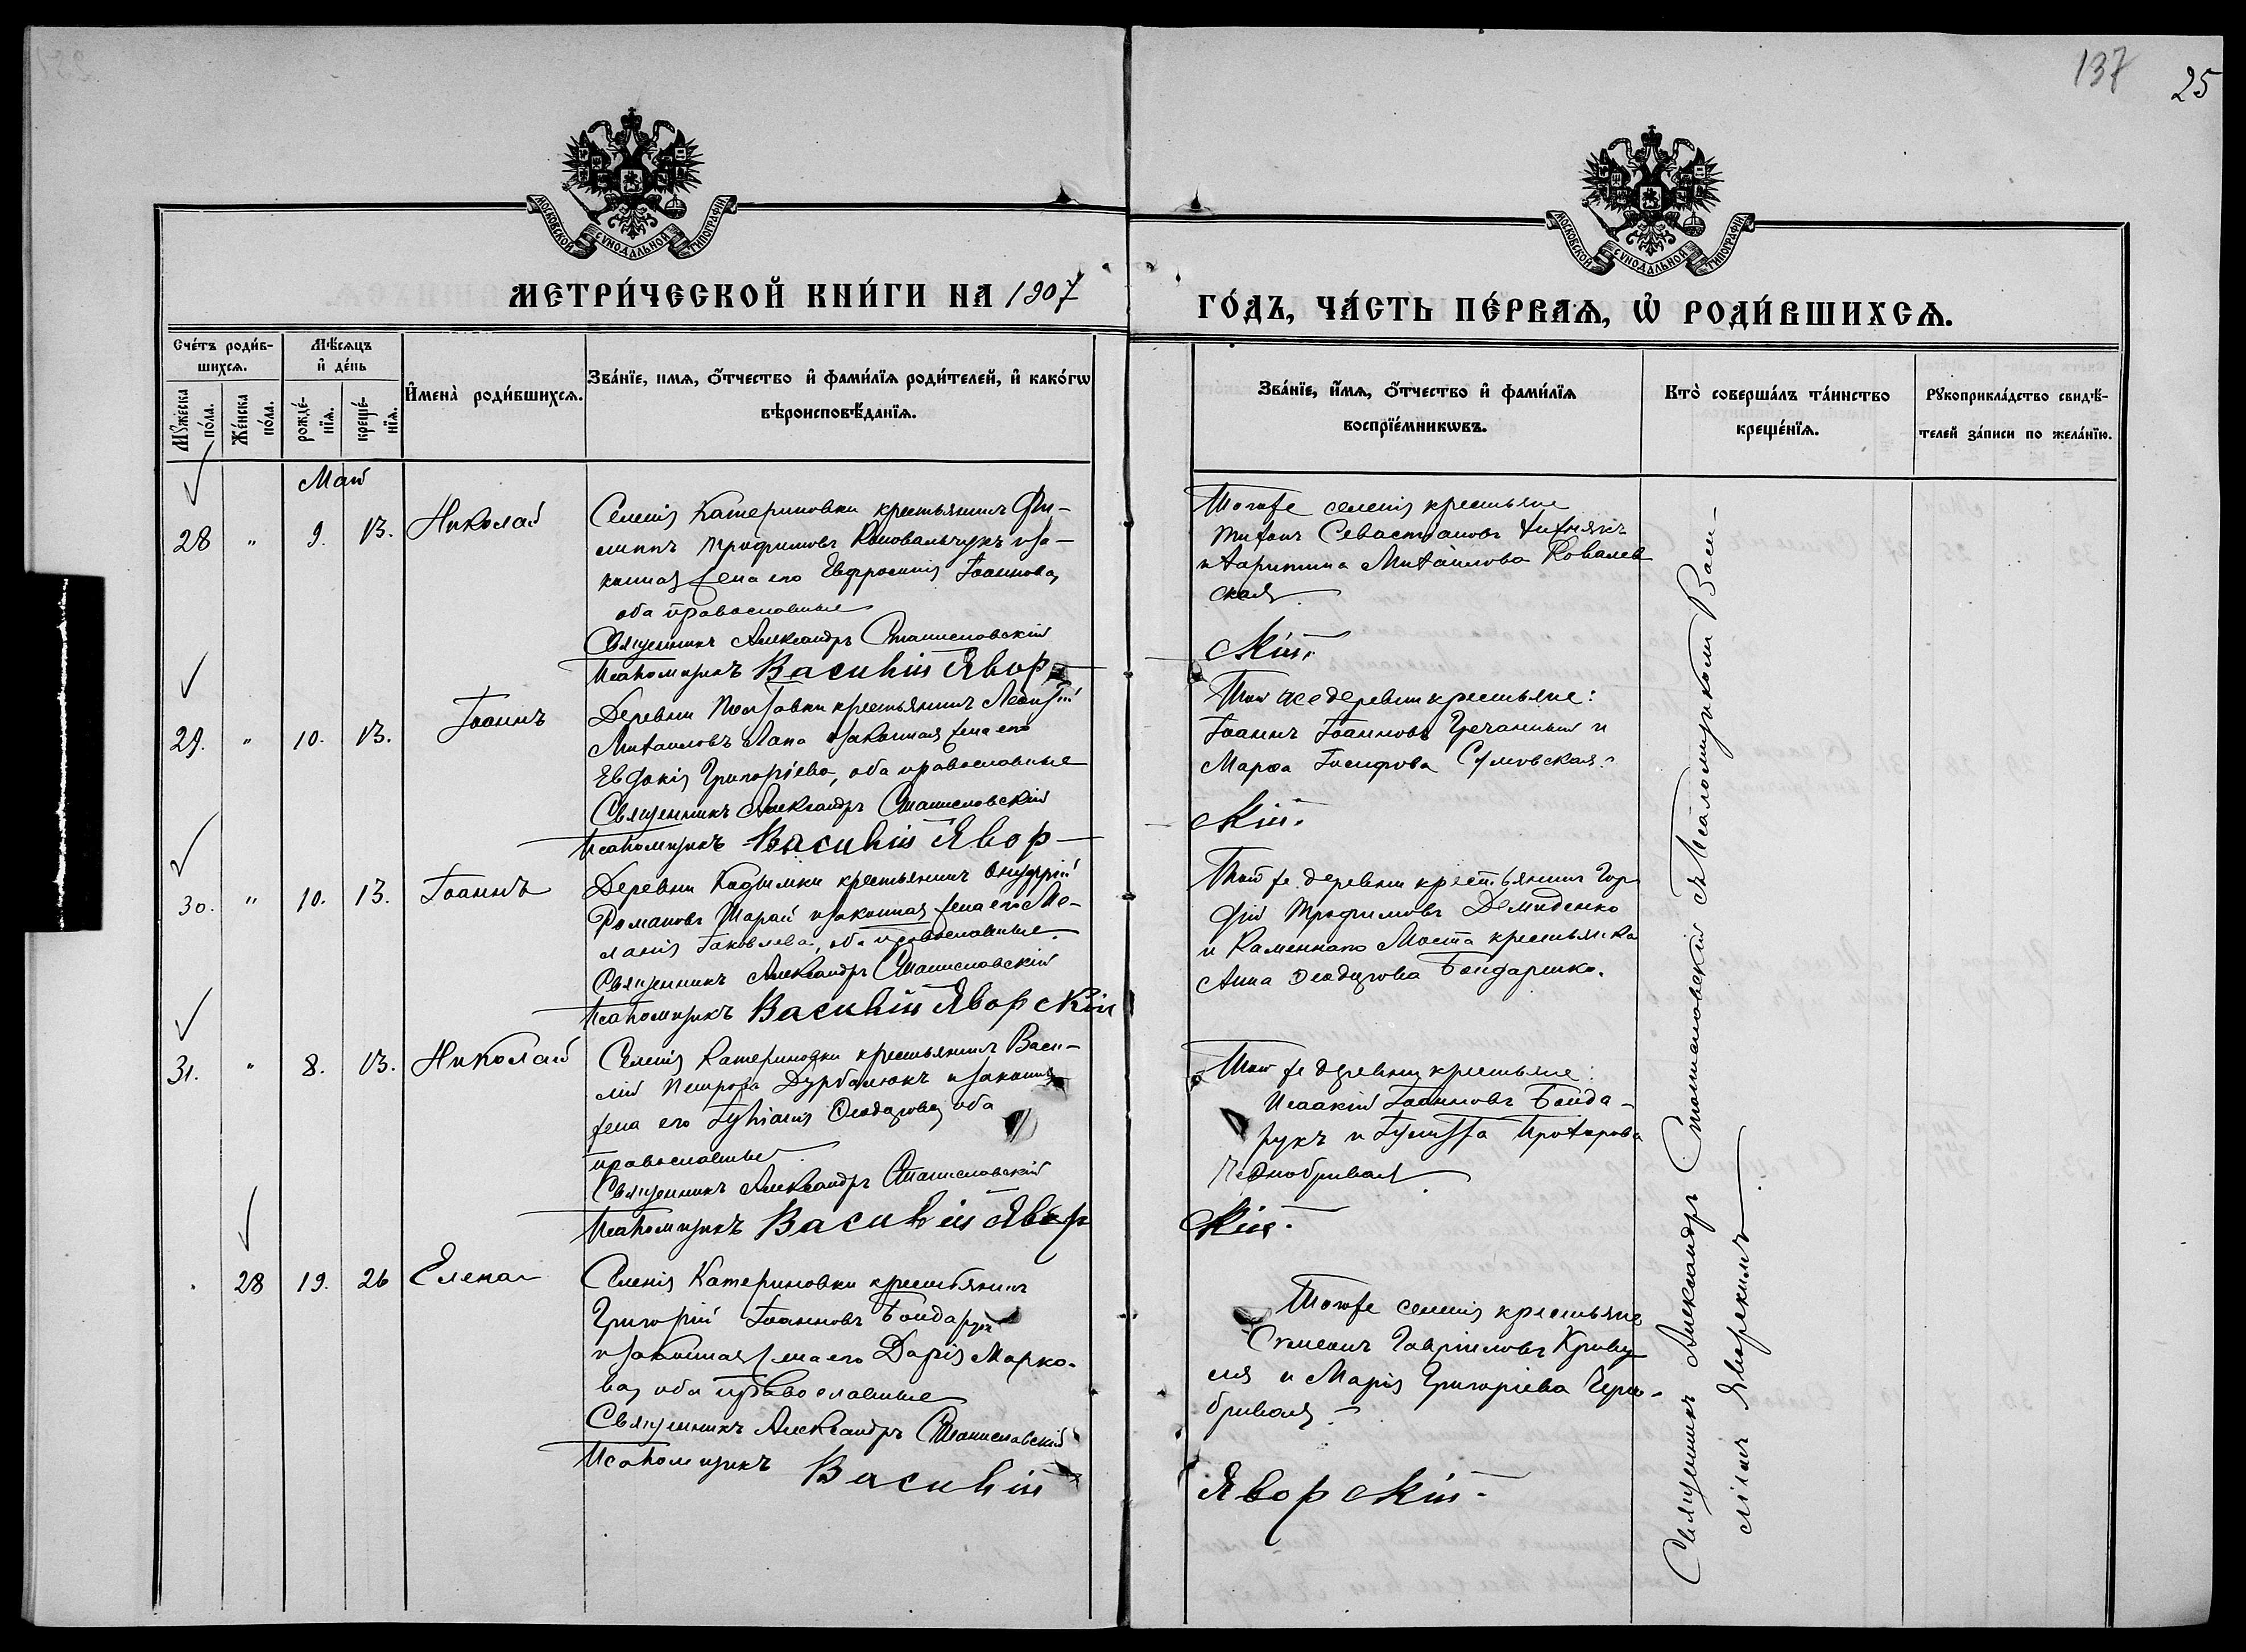 137
25
МОСКОВСКОЙ СѴНОДАЛЬНОЙ ТИПОГРАФІИ
МОСКОВСКОЙ СѴНОДАЛЬНОЙ ТИПОГРАФІИ
МЕТРИ́ЧЕСКОЙ КНИ́ГИ НА 1907
ГО́ДЪ, ЧА́СТЬ ПЕ́РВАѦ, Ѽ РОДИ́ВШИХСѦ.
Сче́тъ роди́в-
шихсѧ.
Мꙋ́жеска по́ла.
Же́нска по́ла.
Мѣ́сѧцъ
и҆ де́нь
рожде́-
нїѧ.
креще́-
нїѧ.
И҆мена̀ роди́вшихсѧ.
Зва́нїе, имѧ, ѻ҆́тчество и҆ фами́лїѧ роди́телей, и҆ како́гѡ
вѣроисповѣ́данїѧ.
Зва́нїе, и҆́мѧ, ѻ҆́тчество и҆ фами́лїѧ
воспрїе́мникѡвъ.
Кто̀ соверша́лъ та́инство
креще́нїѧ.
Рꙋкоприкла́дство свидѣ́-
телей за́писи по жела́нїю.
Май
28 " 9. 13. Николай
Селенія Катериновки крестьянинъ Фи-
липпъ Трофимовъ Коновальчукъ и за-
конная жена его Евфросинія Іоаннова,
оба православные
Священникъ Александръ Станиславскій
Псаломщикъ Василій Явор
Тогоже селенія крестьяне
Тихонъ Севастіановъ
и Харитина Михайлова Ковалев
ская
скій.
29. " 10. 13. Іоаннъ
Деревни крестьянинъ Леонтій
Михаиловъ Лапа и законная жена его
Евдокія Григоріева, оба православные
Священникъ Александръ Станиславскій
Псаломщикъ Василій Явор
Той же деревни крестьяне:
Іоаннъ Іоанновъ Гречанный и
Марѳа Іосифова Сумовская.
скій.
30. " 10. 13. Іоаннъ
Деревни Кадымки крестьянинъ Онуфрій
Романовъ Шарай и законная жена его Ме-
ланія Іаковлева, оба православные.
Священникъ Александръ Станиславскій
Псаломщикъ Василій Яворскій
Той же деревни крестьянинъ Гор
дій Трофимовъ Демиденко
и Каменнаго Моста крестьянка
Анна Ѳеодорова Бондаренко.
31. " 8. 13. Николай
Селенія Катериновки крестьянинъ Васи-
лій Петровъ Дурбалюкъ и законная
жена его Іуліанія Ѳеодорова, оба
православные
Священникъ Александръ Станиславскій
Псаломщикъ Василій Явор
Той же деревни крестьяне:
Исаакій Іоанновъ Бонда-
рукъ и Іулитта Прохорова
Чернобривая
скій.
28 19. 26 Елена
Селенія Катериновки крестьянинъ
Григорій Іоанновъ Бондарукъ
и законная жена его Дарія Марко-
ва, оба православные
Священникъ Александръ Станиславскій
Псаломщикъ Василій
Тогоже селенія крестьяне
Симеонъ Гавріиловъ Криву
ля и Марія Григоріева Черно-
бривая.
Яворскій.
Священникъ Александръ Станиславскій съ Псаломщикомъ Васи-
ліемъ Яворскимъ